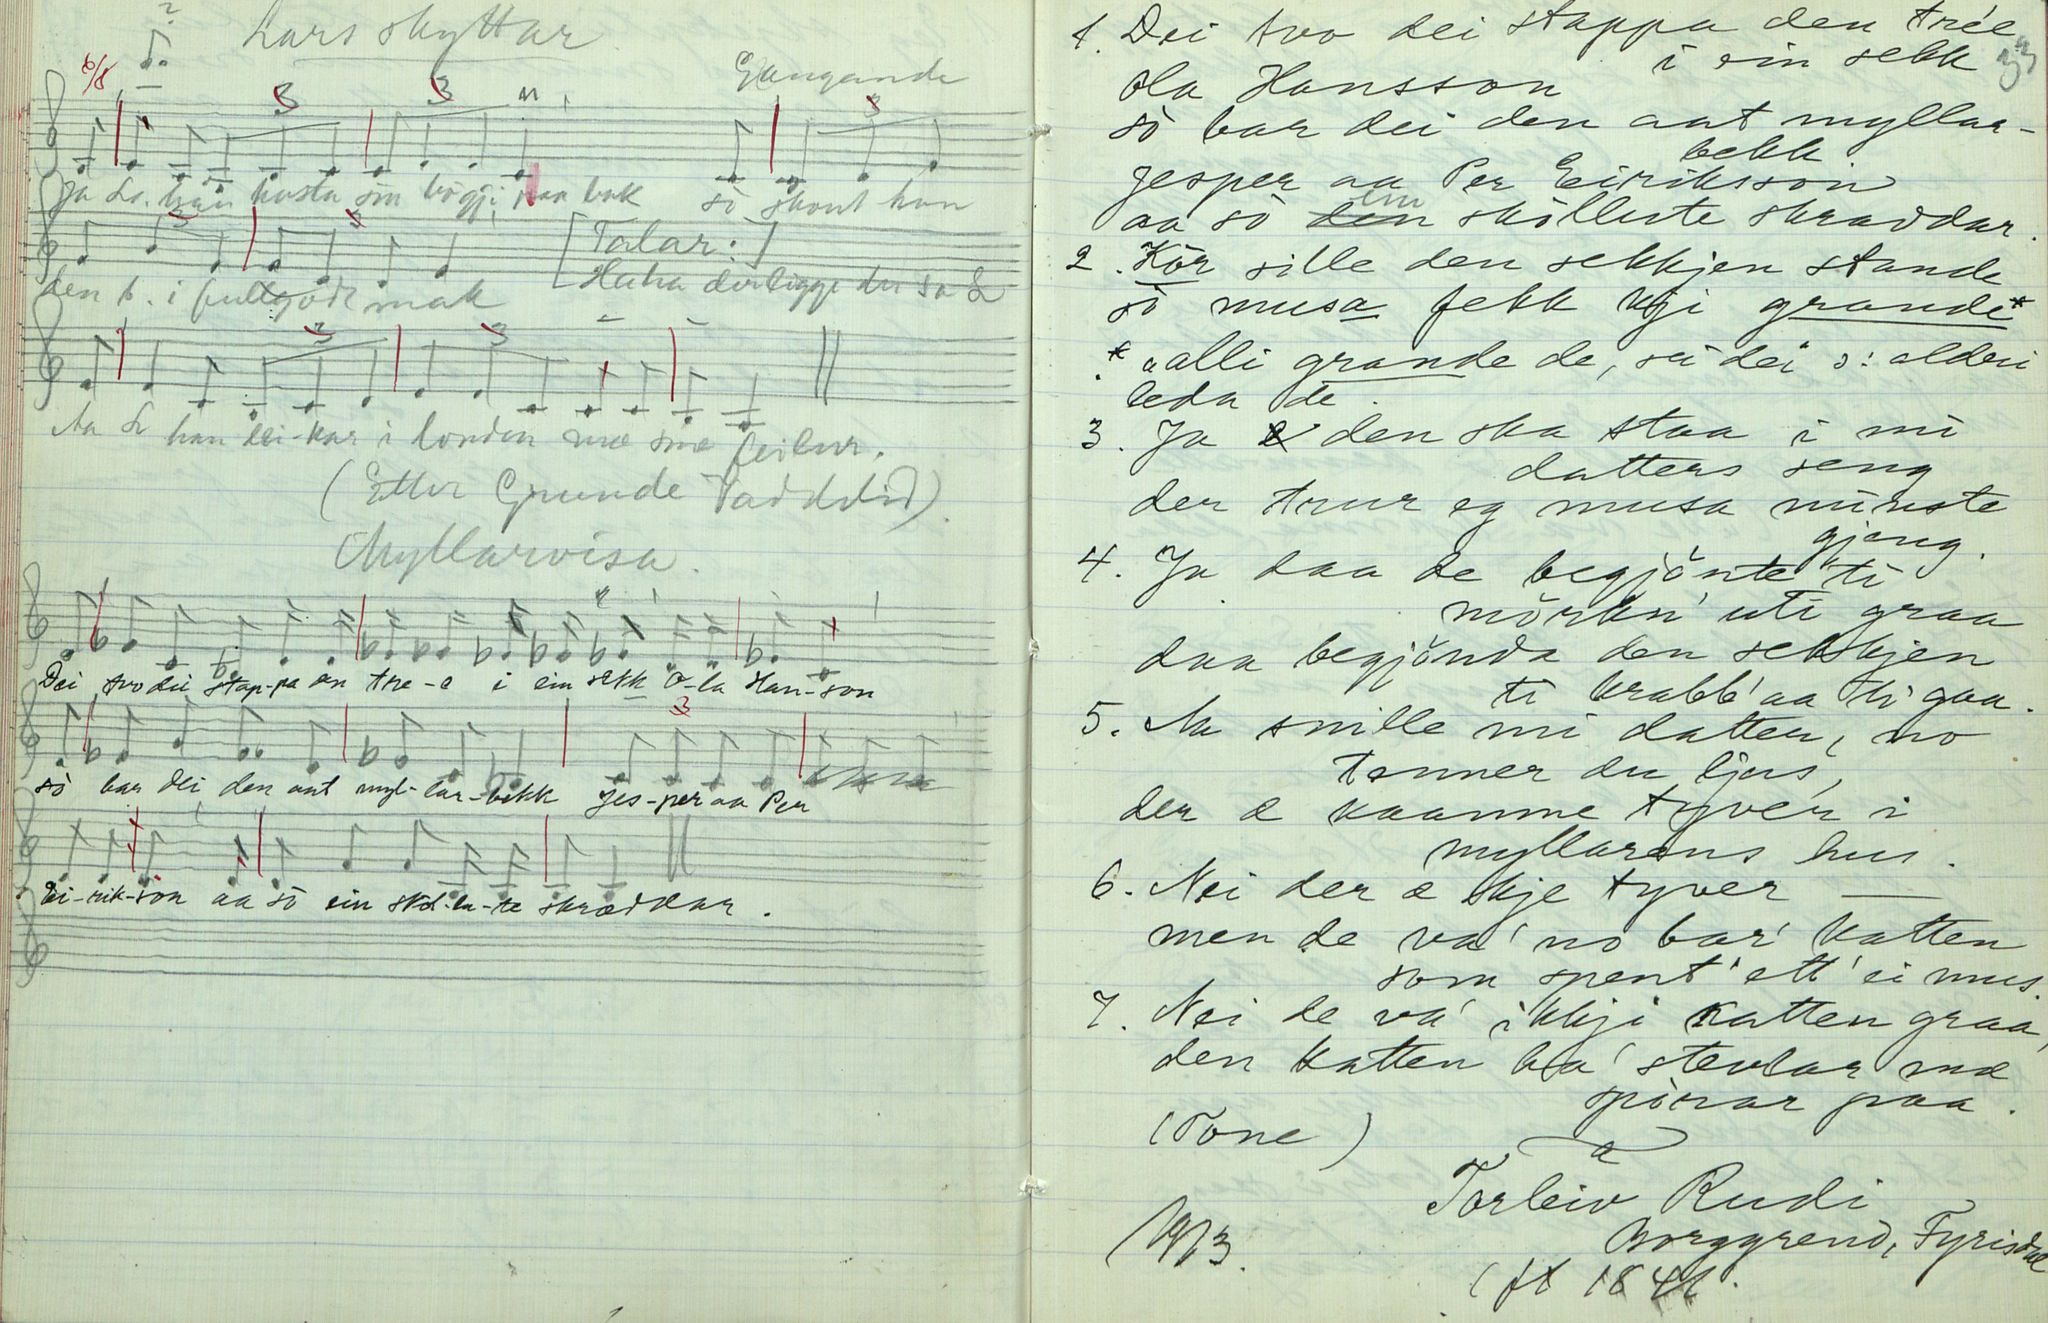 ?
Lars skyttar
6/8
Gangande
3 3 3
Ja L. han kasta sin bögji paa bak så skout han
3 3
den b. i fullgode mak
[Talar:]
Haha der ligge du sa L
3 3
Aa L han lei-kar i londen mæ sine feilur.
(Etter Gunde Taddeli)
Myllarvisa.
Dei tvo dei stap-pa en tre-e i ein sekk O-la Han-son
3
sò bar dei den aat myl-lar-bekk Jes-per aa Per
Ei-rik-son aa sò ein sköl-lu-te skræddar.
33
1. Dei tvo dei stappa den trée
i ein sekk
Ola Hansson
sò bar dei den aat myllar-
bekk
Jesper aa Per Eiriksson
aa sò ein sköllute skraddar.
2. Kör sille den sekkjen stande
sò musa fekk kji grande*
* aalli grande de, sei dei ɔ: alderi
leda de.
3. Ja den ska staa i mi
datters seng
der trur eg musa minste
gjeng.
4. Ja daa de begjönte ti
mörkn' uti graa
daa begjönda den sekkjen
ti krabb' aa ti gaa.
5. Aa snille mi datter, no
tenner du ljos,
der æ kaamme tyver i
myllarens hus.
6. Nei der æ kje tyver —
men de va' no bar' katten
som spent' ett' ei mus.
7. Nei de va' ikkji katten graa,
den katten ha' stevlar mæ
spórar paa.
(Tone)
a
Torleiv Rudi
Borggrend, Fyrisdal
1913.
(ft 1841.